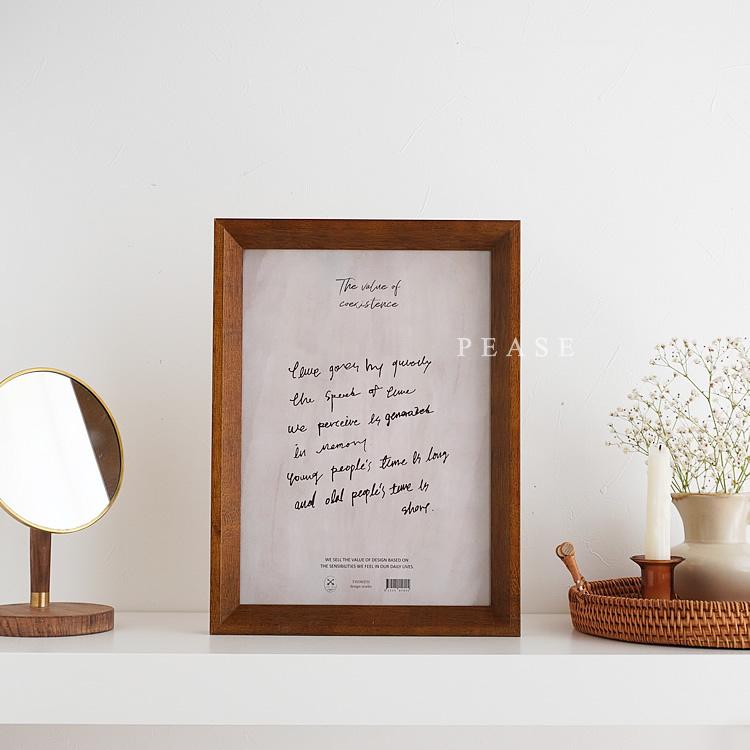 The value of
coexistence
PEASE
time goes by quickly
the speed of time
we perceive is generated
in memory
young people's time is long
and old people's time is
short.
WE SELL THE VALUE OF DESIGN BASED ON
THE SENSIBILITIES WE FEEL IN OUR DAILY LIVES.
design studio